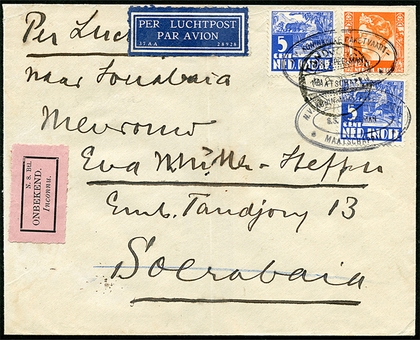 Per Luch
PER LUCHTPOST
PAR AVION
17 AA 28928
naar Soerabaia
5 CENT
NED. INDIE
5 CENT
NED. INDIE
MAATSCHAPPIJ
Mevrouw
Eva Müller-Steffen
Emb. Tandjong 13
Soerabaia
ONBEKEND.
Inconnu.